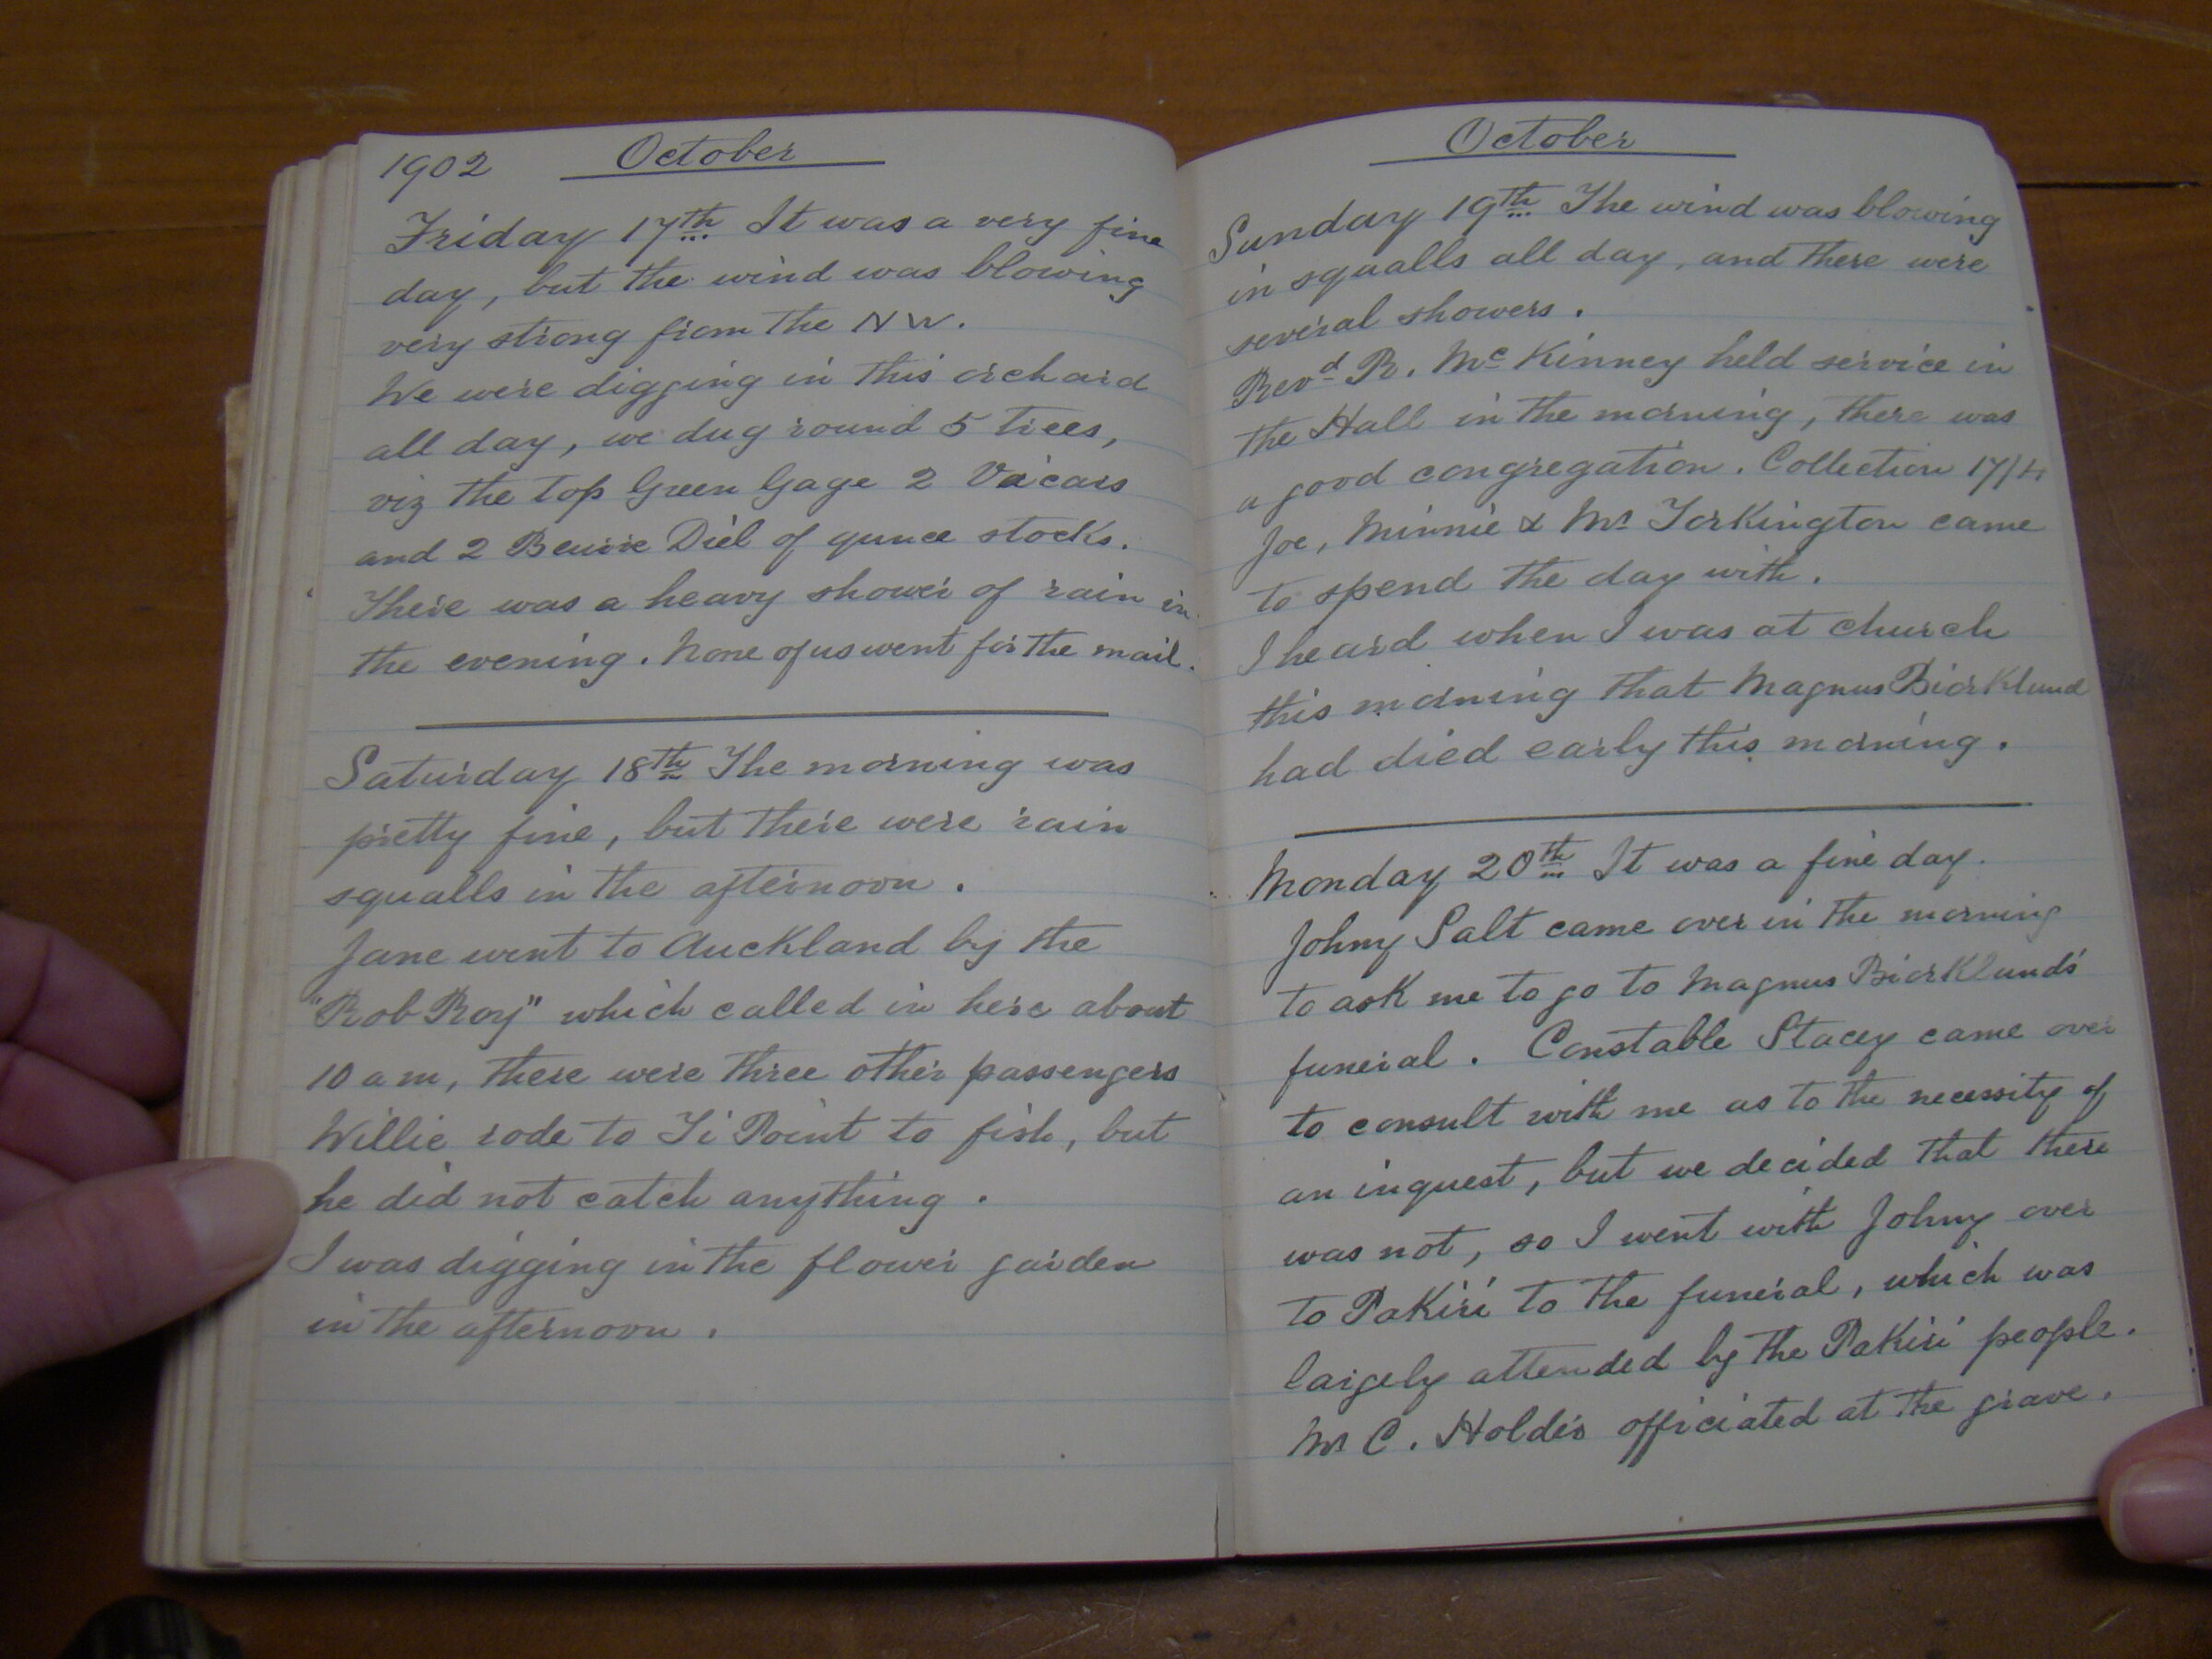 1902 October
Friday 17th It was a very fine
day, but the wind was blowing
very strong from the NW.
We were digging in this orchard
all day, we dug round 5 trees,
viz the top Green Gage 2 Vicars
and 2 Beurre Diel of qunce stocks.
There was a heavy shower of rain in
the evening. None of us went for the mail.
Saturday 18th The morning was
pretty fine, but there were rain
squalls in the afternoon.
Jane went to Auckland by the
"Rob Roy" which called in here about
10 am, there were three other passengers
Willie rode to Ti Point to fish, but
he did not catch anything.
I was digging in the flower garden
in the afternoon.
October
Sunday 19th The wind was blowing
in squalls all day, and there were
several showers.
Revd R. McKinney held service in
the Hall in the morning, there was
a good congregation. Collection 17/4
Joe, Minnie & Mr Torkington came
to spend the day with.
I heard when I was at church
this morning that Magnus Biorklund
had died early this morning.
Monday 20th It was a fine day.
Johny Salt came over in the morning
to ask me to go to Magnus Biorklund's
funeral. Constable Stacey came over
to consult with me as to the necessity of
an inquest, but we decided that there
was not, so I went with Johny over
to Pakiri to the funeral, which was
largely attended by the Pakiri people.
Mr C. Holder officiated at the grave.